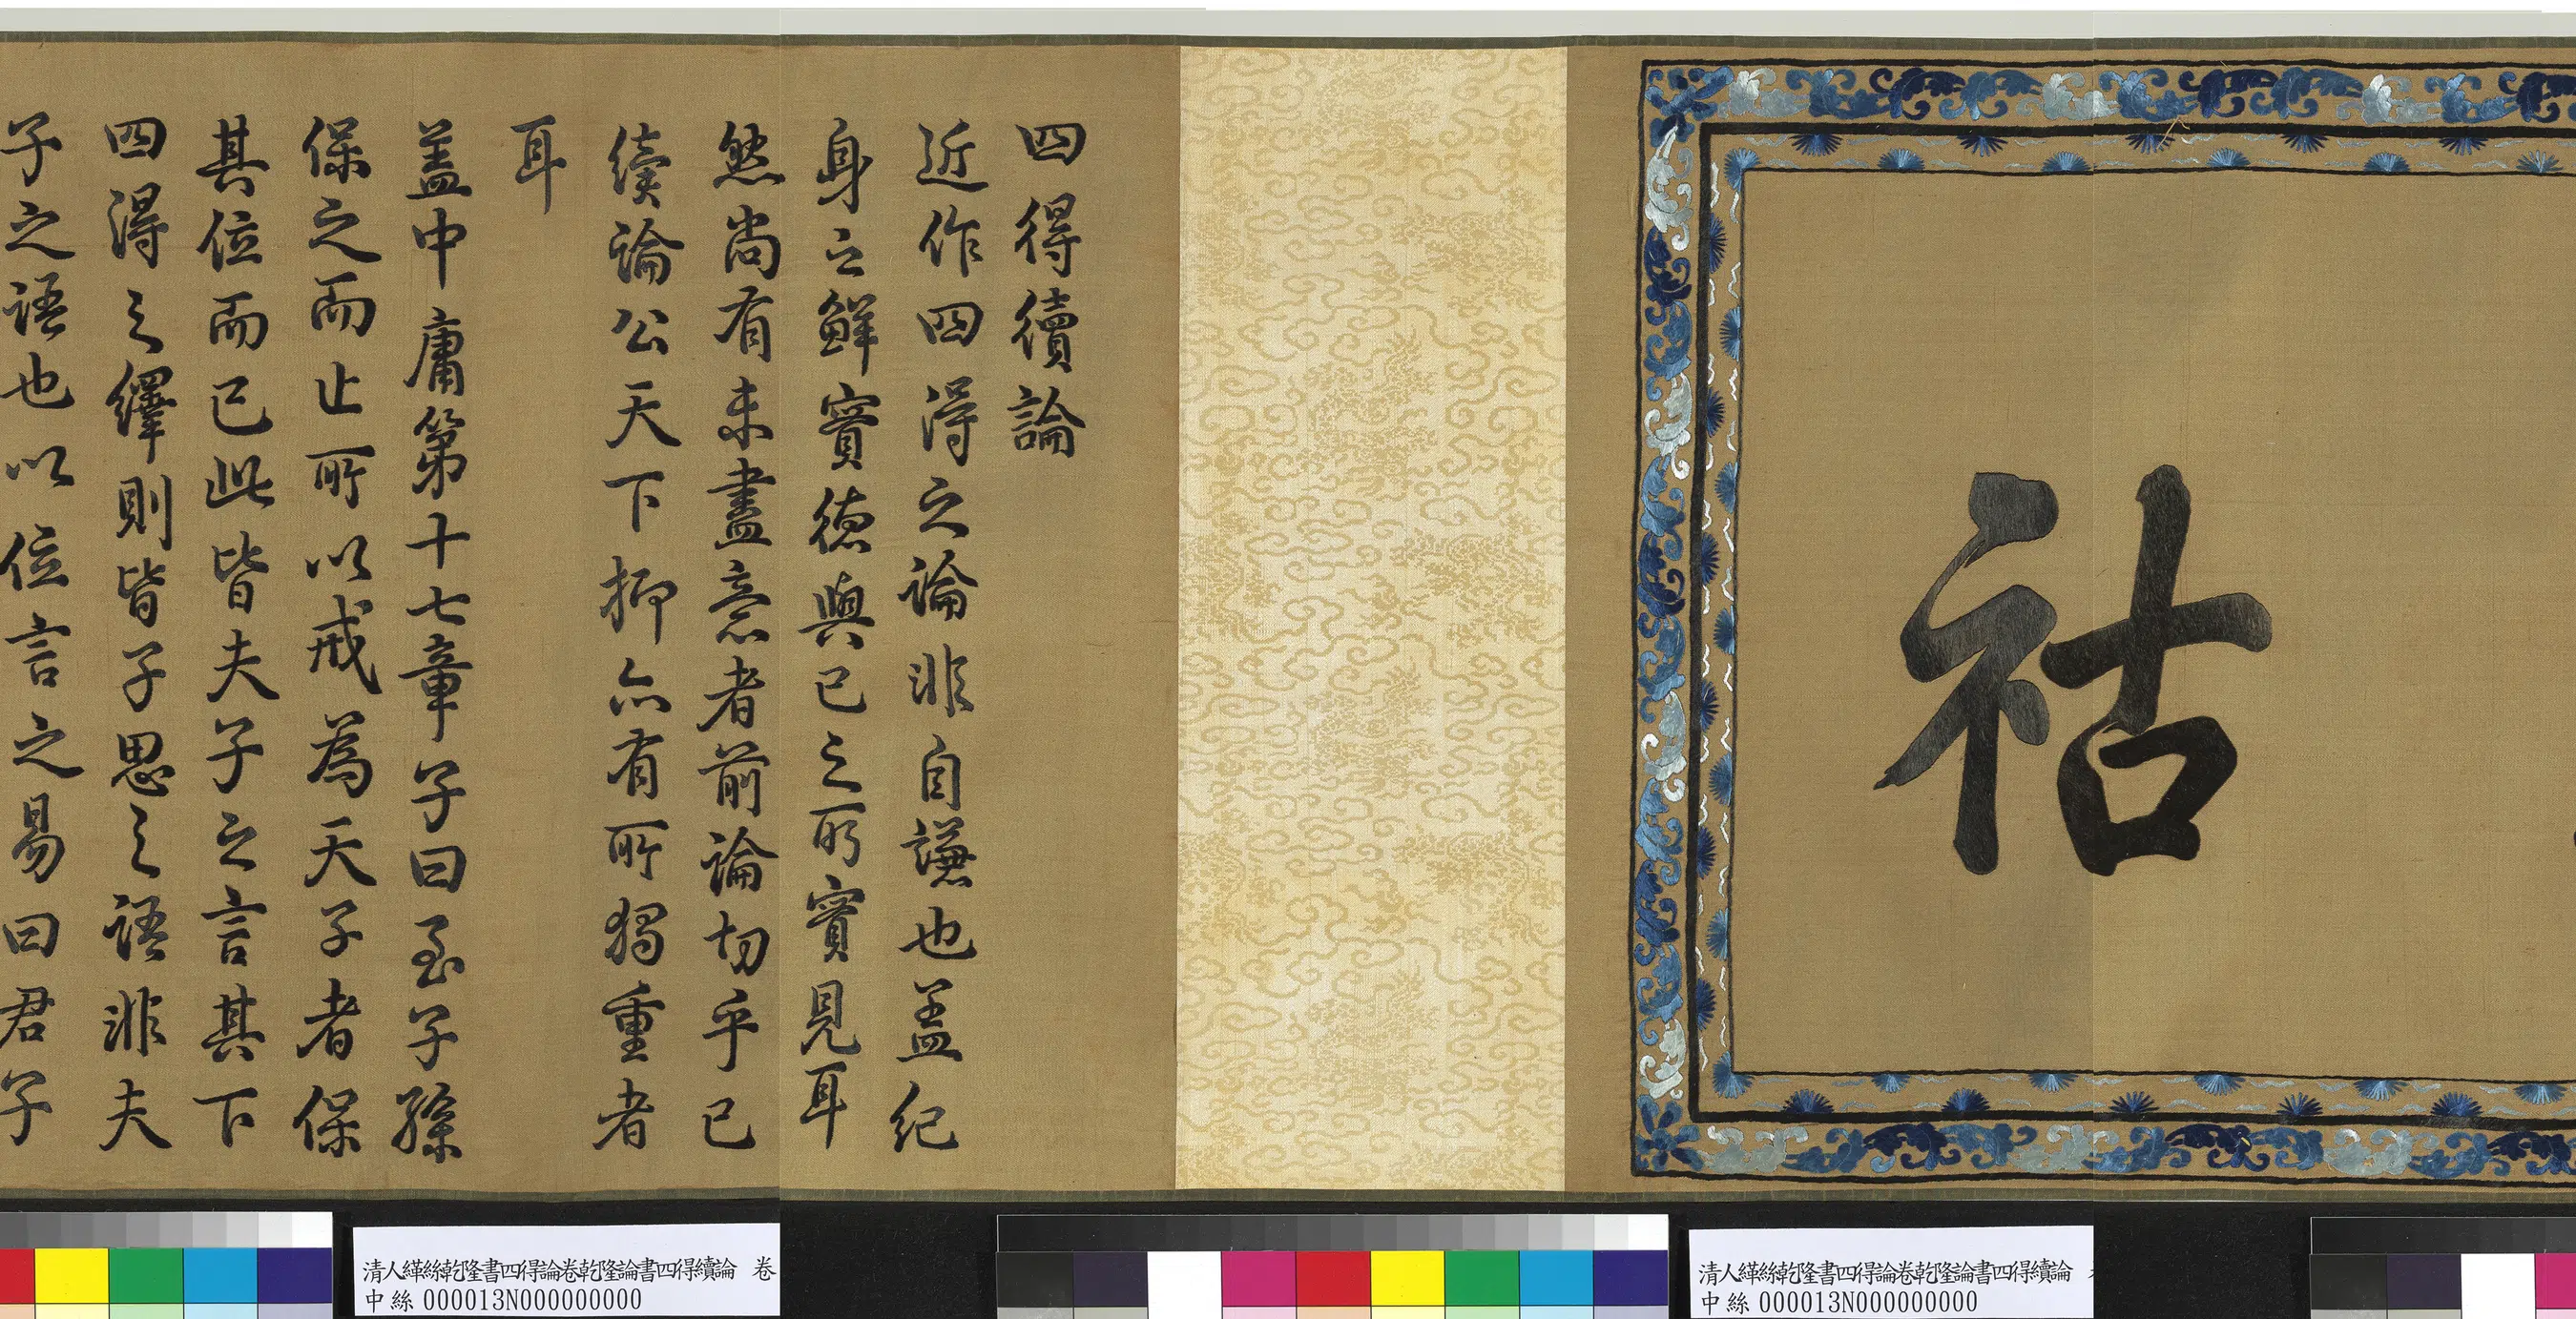 祜
四得續論
近作四得之論非自謙也蓋紀
身之鮮實德與已之所實見耳
然尚有未盡意者前論切乎已
續論公天下抑亦有所獨重者
耳
蓋中庸第十七章子曰至子孫
保之而止所以戒為天子者保
其位而已此皆夫子之言其下
四得之繹則皆子思之語非夫
子之語也以位言之易曰君子
清人緙絲乾隆書四得論卷乾隆論書四得續論 卷
中絲 000013N000000000
清人緙絲乾隆書四得論卷乾隆論書四得續論
中絲 000013N000000000